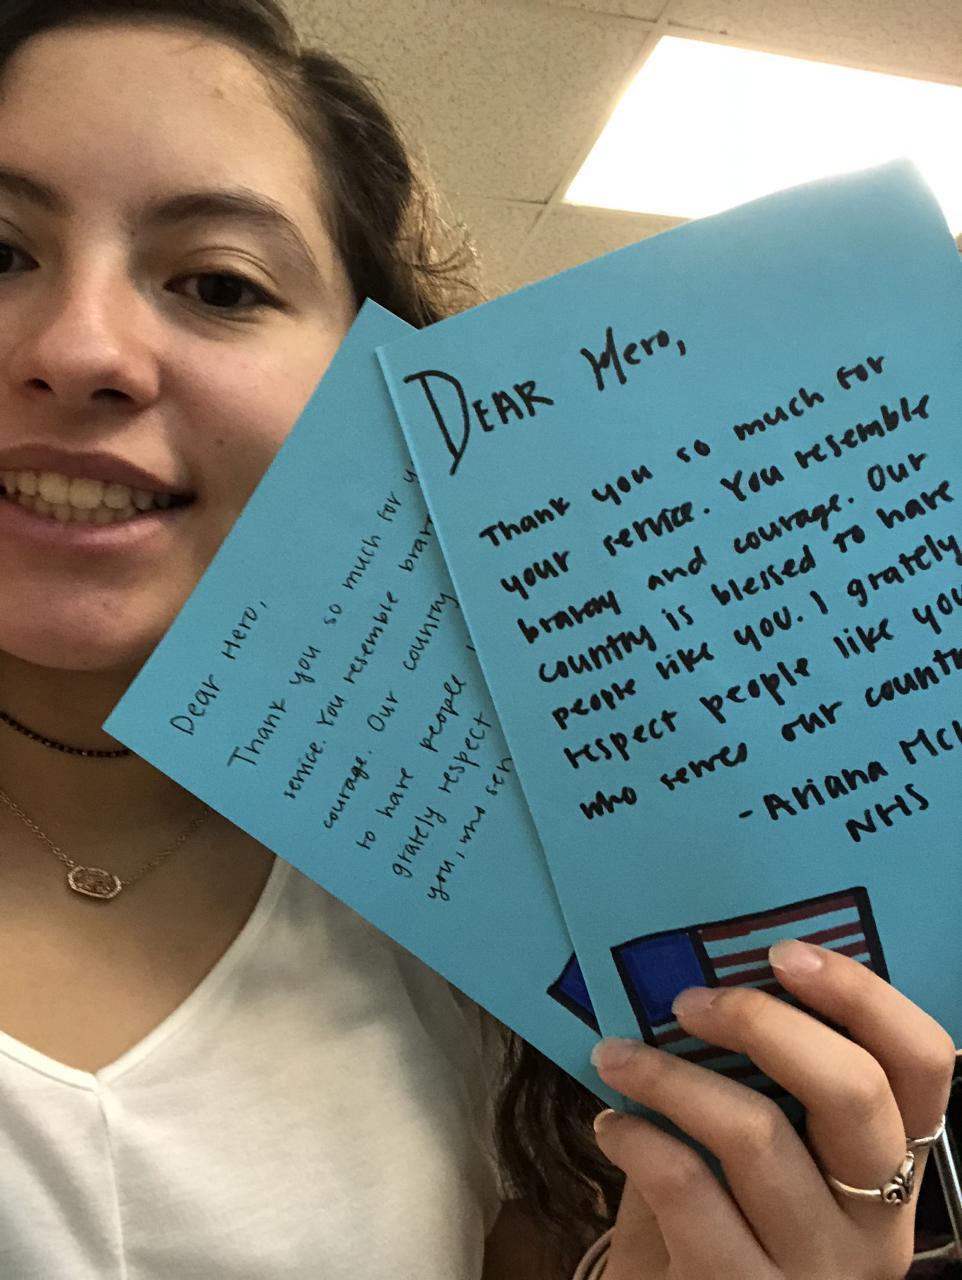 Dear Hero,
Thank you so much for
service. You resemble
courage. Our country
to have people
grately respect
you, who
DEAR Hero,
Thank you so much for
your service. You resemble
bravery and courage. Our
country is blessed to have
people like you. I grately
respect people like you
who serves our
- Ariana
NHS